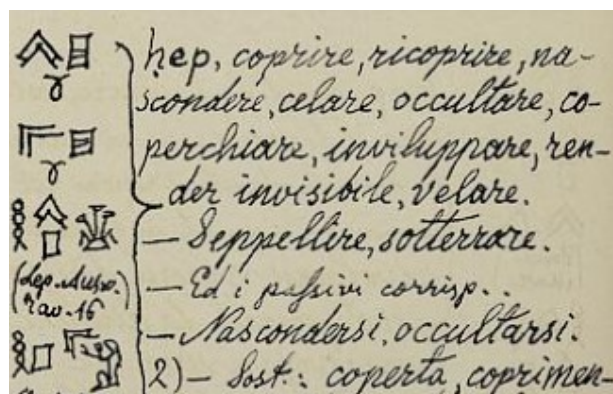 hep, coprire, ricoprire, na-
scondere, celare, occultare, co-
perchiare, inviluppare, ren-
der invisibile, velare.
— Seppellire, sotterrare.
(Lep. Auso.
Tav. 16
— Ed i passivi corrisp..
— Nascondersi, occultarsi.
2) — Sost.: coperta, coprimen-